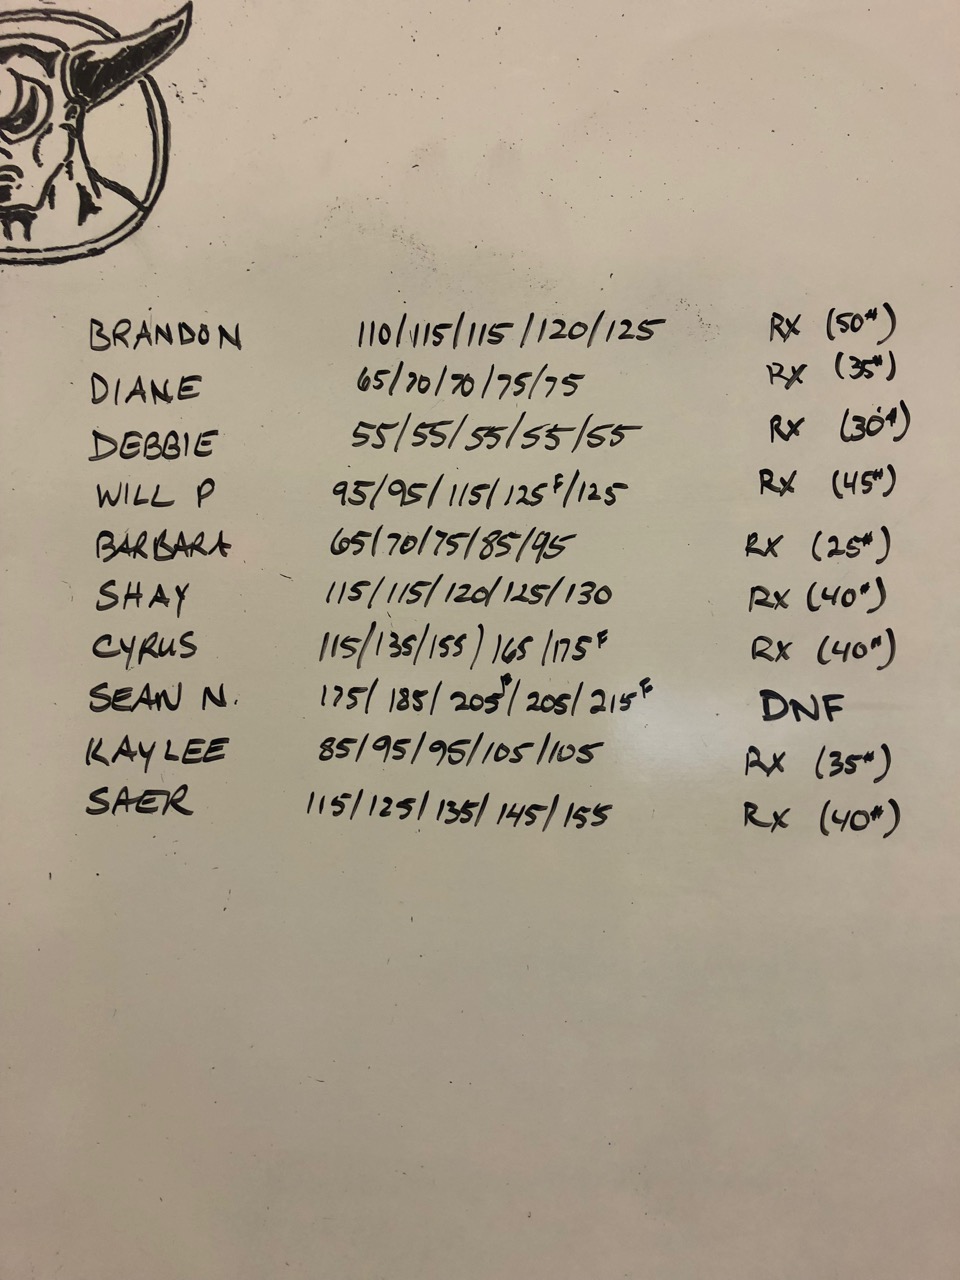 BRANDON 110/115/115/120/125 RX (50#)
DIANE 65/70/70/75/75 RX (35#)
DEBBIE 55/55/55/55/55 RX (30#)
WILL P 95/95/115/125F/125 RX (45#)
BARBARA 65/70/75/85/95 RX (25#)
SHAY 115/115/120/125/130 RX (40#)
CYRUS 115/135/155/165/175F RX (40#)
SEAN N. 175/185/205F/205/215F DNF
KAYLEE 85/95/95/105/105 RX (35#)
SAER 115/125/135/145/155 RX (40#)